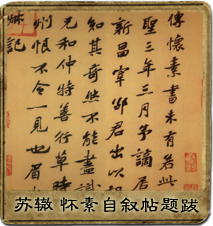 傳懷素書未有若此
聖三年三月予謫居
新昌宰邵君出以
知其奇然不能盡識
兄和仲特善行草時
州恨不令一見也眉
記
苏辙 怀素自叙帖题跋